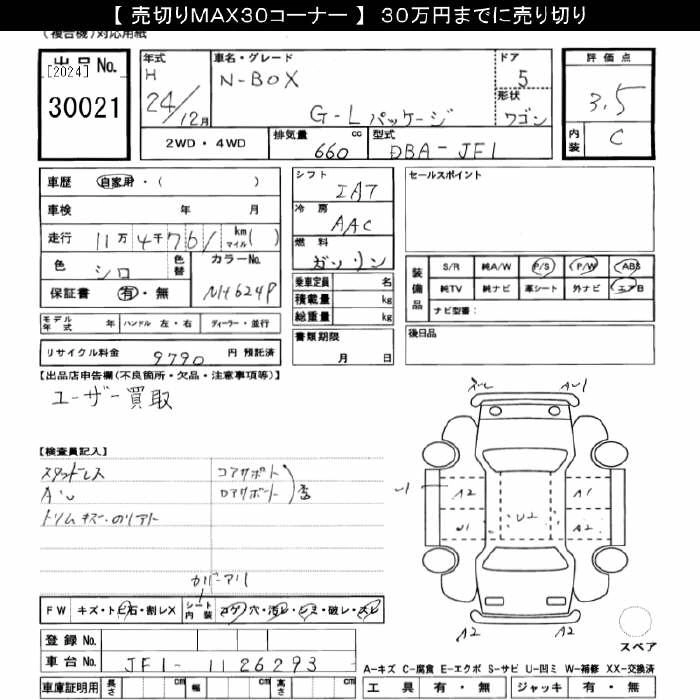 【 売切りMAX30コーナー 】 30万円までに売り切り
(複合機)対応用紙
出品No.
[2024]
30021
年式
H
24/12月
車名・グレード
N-BOX
G-Lパッケージ
ドア
5
形状
ワゴン
評価点
3.5
内装
C
2WD・4WD
排気量 660 cc
型式 DBA-JF1
車歴 自家用・( )
車検 年 月
走行 11万4千761 km マイル( )
色 シロ
色替
カラーNo.
NH624P
保証書 有・無
モデル年式 年
ハンドル 左・右
ディーラー・並行
リサイクル料金 9790 円 預託済
シフト
IAT
冷房
AAC
燃料
ガソリン
乗車定員 名
積載量 kg
総重量 kg
書類期限
月 日
セールスポイント
装備品
S/R 純A/W P/S P/W ABS
純TV 純ナビ 革シート 外ナビ エアB
ナビ型番:
後日品
【出品店申告欄(不良箇所・欠品・注意事項等)】
ユーザー買取
【検査員記入】
スタッドレス
コアサポート
ロアサポート
A A1
A2 A1
U1 U2 A2
A2 A2
FW キズ・トビ石・割レX
シート内装
コゲ・穴・汚レ・シミ・破レ・スレ
登録No.
車台No. JF1-1126293
車庫証明用 長さ cm 幅 cm 高さ cm
スペア
A-キズ C-腐食 E-エクボ S-サビ U-凹ミ W-補修 XX-交換済
工具 有・無 ジャッキ 有・無